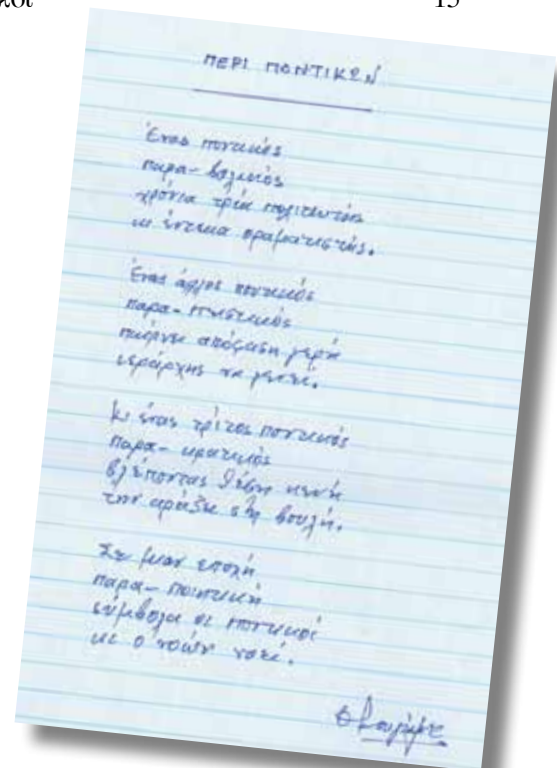 κοι 15
ΠΕΡΙ ΠΟΝΤΙΚΩΝ
Ένας ποντικός
παρα-βολικός
χρόνια τρία πολιτευτής
κι έντεκα οραματιστής.
Ένας άλλος ποντικός
παρα-πειστικός
παίρνει απόφαση γερή
ιεράρχης να γενεί.
Κι ένας τρίτος ποντικός
παρα-κρατικός
βλέποντας θέση κενή
την άραξε στη βουλή.
Σε μιαν εποχή
παρα-ποιητική
σύμβολα οι ποντικοί
κι ο νοών νοεί.